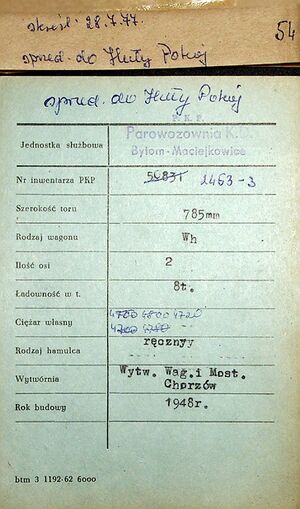 skreśl. 28.7.77.
54
sprzed. do Huty Pokój
sprzed. do Huty Pokój
P. K. P.
Parowozownia K.D.
Bytom-Maciejkowice
Jednostka służbowa
Nr inwentarza PKP 2463-3
Szerokość toru 785mm
Rodzaj wagonu Wh
Ilość osi 2
Ładowność w t. 8t.
4700 4800 4720
Ciężar własny
Rodzaj hamulca ręczny
Wytwórnia Wytw. Wag.i Most.
Chorzów
Rok budowy 1948r.
btm 3 1192-62 6000